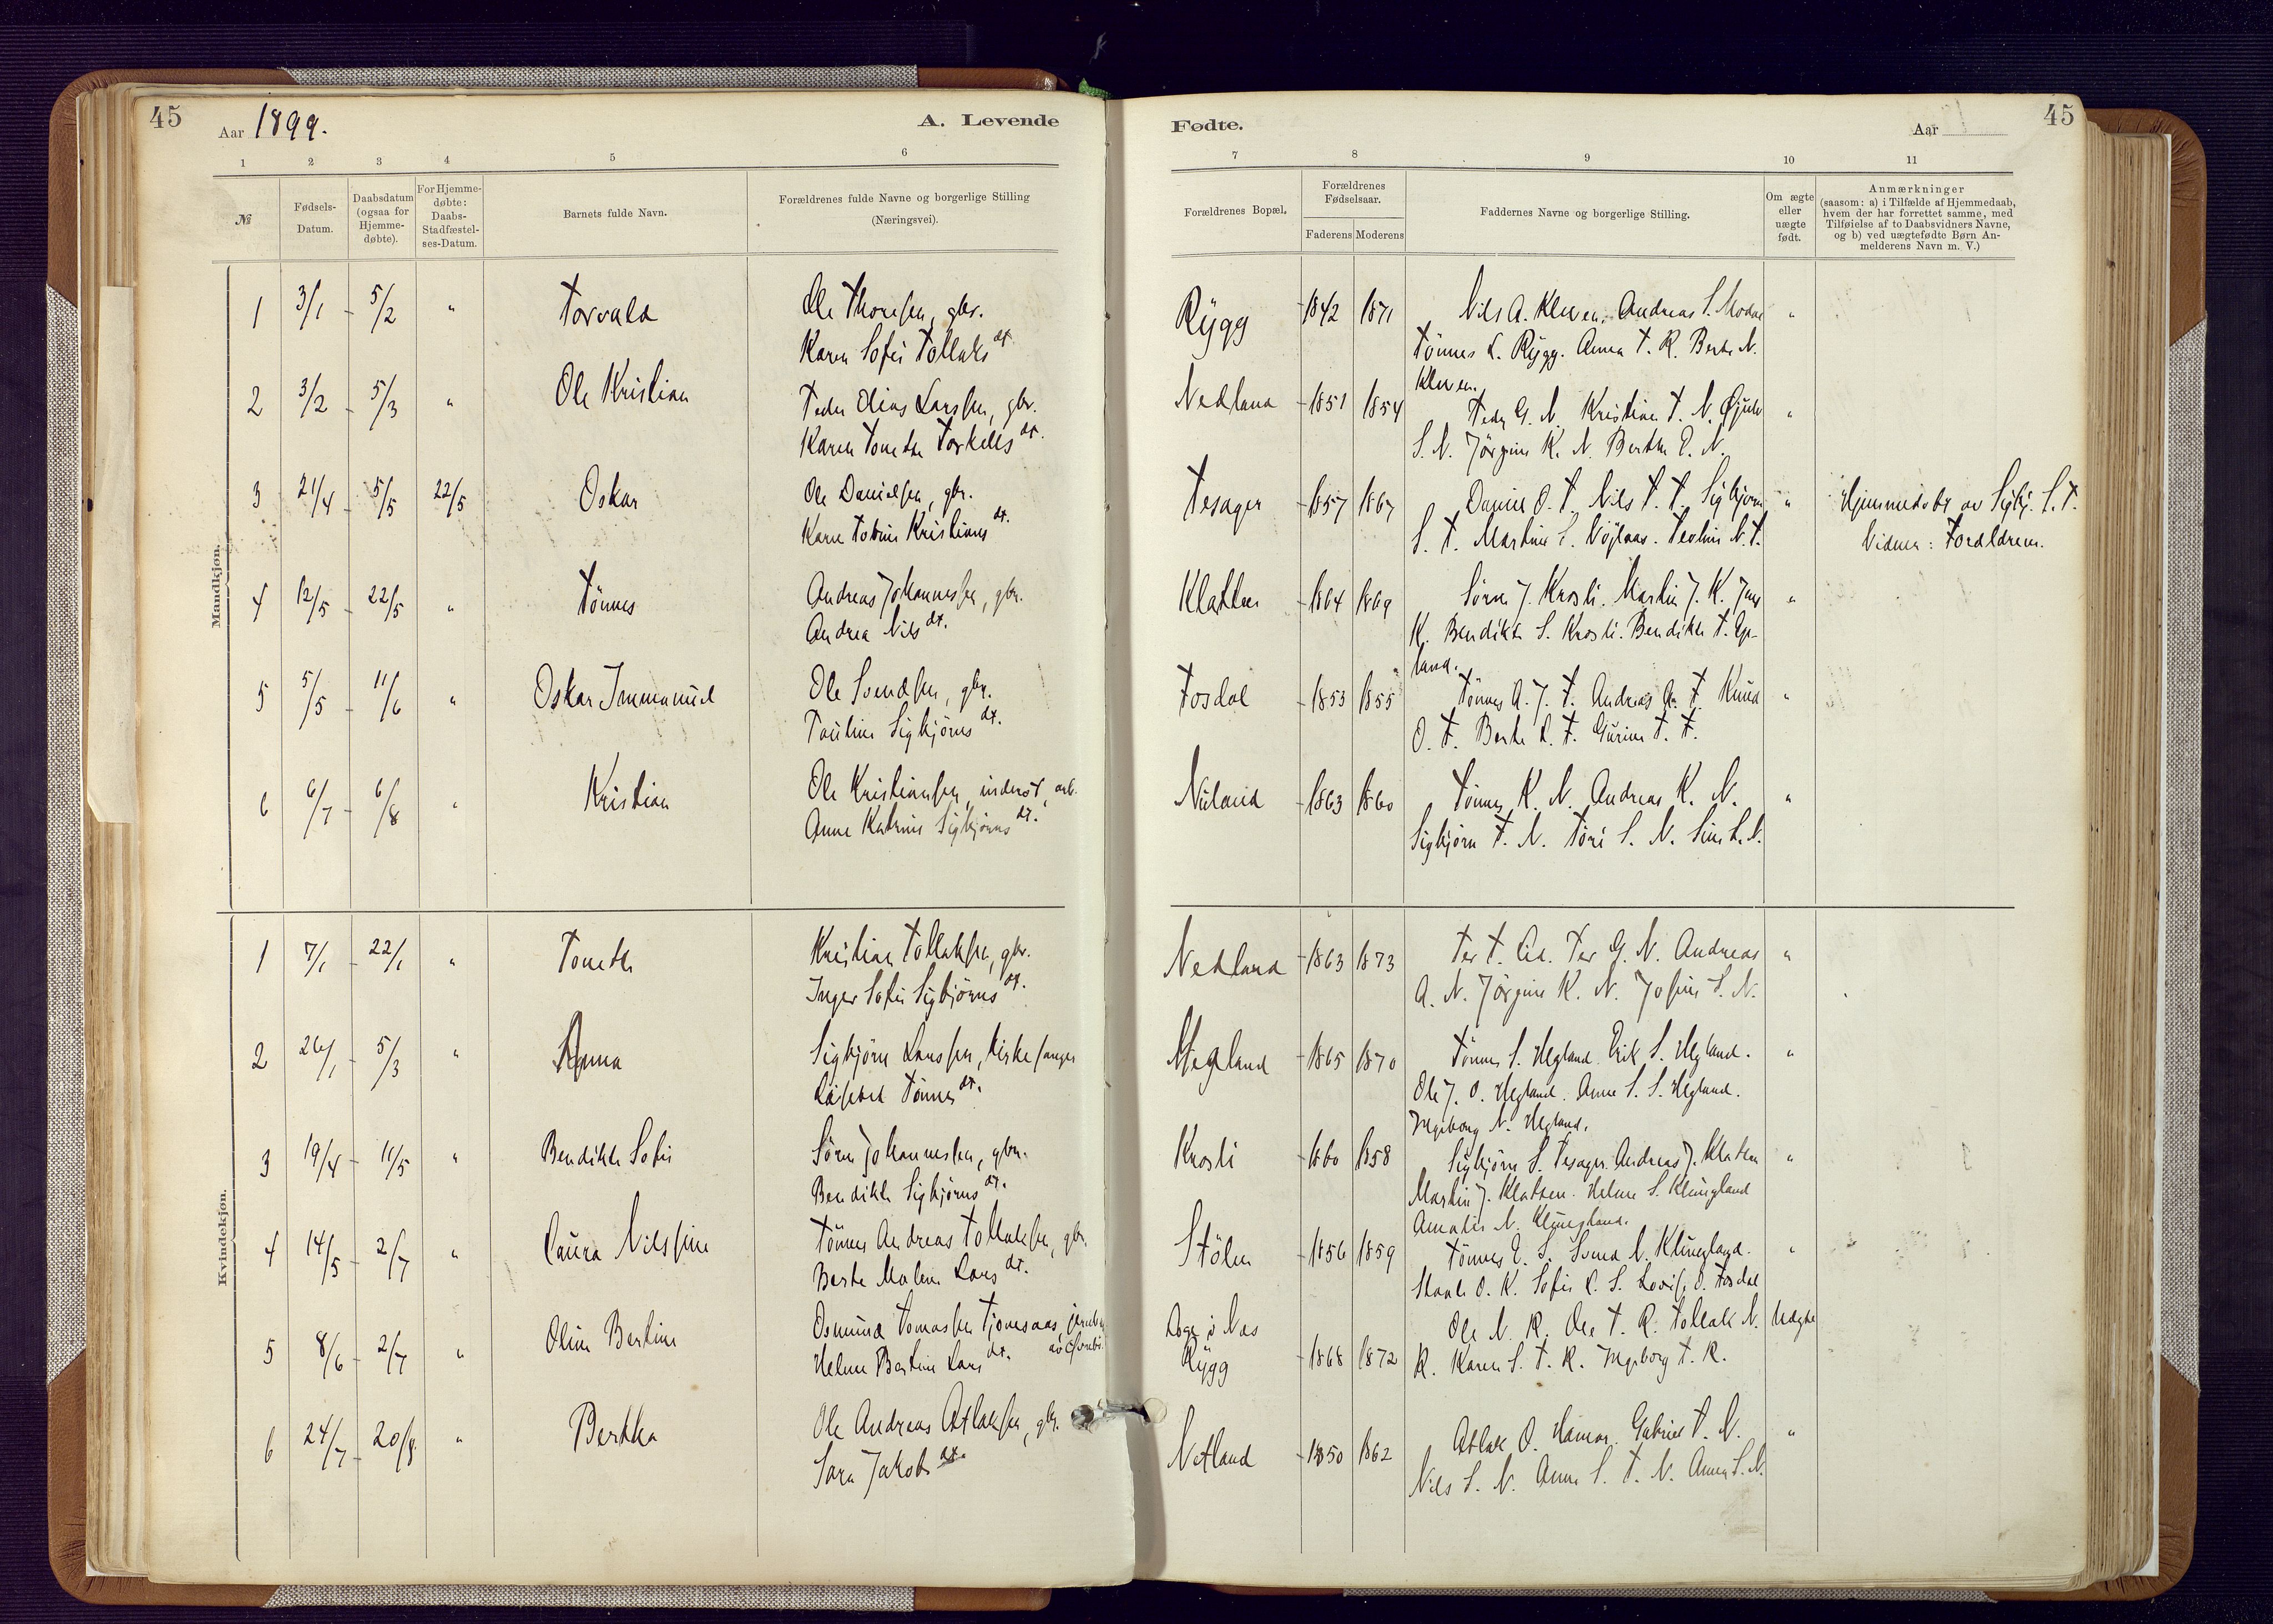 45
Aar 1899.
A. Levende
1 2 3 4 5 6
№
Fødsels-
Datum.
Daabsdatum
(ogsaa for
Hjemme-
døbte).
For Hjemme-
døbte:
Daabs-
Stadfæstel-
ses-Datum.
Barnets fulde Navn.
Forældrenes fulde Navne og borgerlige Stilling
(Næringsvei).
Mandkjøn.
1 3/1 - 5/2 " Torvald Ole Thorsen, gbr.
Karen Sofie Tollaks dt.
2 3/2 - 5/3 " Ole Kristian Peder Elias Larsen, gbr.
Karen Tonette Torkells dt.
3 21/4 - 5/5 22/5 Oskar Ole Danielsen, gbr.
Karen Kristians dt.
4 12/5 - 22/5 " Tönnes Andreas Johannesen, gbr.
Andrea Nils dt.
5 5/5 - 11/6 " Oskar Immanuel Ole Svendsen, gbr.
Pauline Sigbjörns dt.
6 6/7 - 6/8 " Kristian Ole Kristiansen, inderst, arb.
Anne Katrine Sigbjörns dt.
Kvindekjøn.
1 7/1 - 22/1 " Tonette Kristian Tollaksen, gbr.
Inger Sofie Sigbjörns dt.
2 26/1 - 5/3 " Anna Sigbjörn Larsen, kirkesanger
Tönnes dt.
3 19/4 - 11/5 " Bendikte Sofie Sören Johannesen, gbr.
Bendikte Sigbjörns dt.
4 14/5 - 2/7 " Laura Nilssine Tönnes Andreas Tollaksen, gbr.
Berte Malene Lars dt.
5 8/6 - 2/7 " Oline Bertine Osmund Tomassen
Helene Bertine Lars dt.
6 24/7 - 20/8 " Bertha Ole Andreas Atlaksen, gbr.
Sara Jakobs dt.
Fødte.
Aar
45
7 8 9 10 11
Forældrenes Bopæl.
Forældrenes
Fødselsaar.
Faderens Moderens
Faddernes Navne og borgerlige Stilling.
Om ægte
eller
uægte
født.
Anmærkninger
(saasom: a) i Tilfælde af Hjemmedaab,
hvem der har forrettet samme, med
Tilføielse af to Daabsvidners Navne,
og b) ved uægtefødte Børn An-
melderens Navn m. V.)
Rygg - 1842 1871 Nils A. Kleven. Andreas S. Modal "
Tönnes L. Rygg. Anna T. R. Berte N.
Kleven.
Nedland - 1851 1854 Peder G. N. Kristian T. N. "
S. N. Jörgine K. N. Berthe E. N.
Tesager - 1857 1867 Daniel O. T. Nils T. T. Sigbjörn " Hjemmedöbt av Sigbj. S. T.
S. T. Martine S. T. N. T. Vidner: Forældrene.
Klatten - 1864 1869 Sören J. Krosli. Martin J. K. Jens "
K. Bendikte S. Krosli. Bendikte T. Ege-
land.
Fosdal - 1853 1855 Tönnes A. J. F. Andreas A. F. Knud "
O. F. Berte L. F. Gurine T. F.
Nuland - 1863 1860 Tönnes K. N. Andreas K. N. "
Sigbjörn T. N. Tori S. N. Sine L. N.
Nedland - 1863 1873 Per G. N. Andreas "
A. N. Jörgine K. N. Josine S. N.
Hegland - 1865 1870 Tönnes S. Hegland. Erik S. Hegland. "
Ole J. O. Hegland. Anne S. S. Hegland.
Ingeborg N. Hegland.
Krosli - 1860 1858 Sigbjörn S. Tesager. Andreas J. Klatten "
Martin J. Klatten. Helene S. Klungland
Amalie N. Klungland.
Stölen - 1856 1859 Tönnes E. S. Svend N. Klungland. "
O. K. Sofie L. S. Lovise O. Fosdal
Aage i Nes Ole N. R. Ole T. R. Tollak N. Uægte
Rygg - 1868 1872 R. Karen S. T. R. Ingeborg T. R.
Netland - 1850 1862 Atlak O. Hamar. Gabriel T. N. "
Nils S. N. Anne S. T. N. Anna S. N.